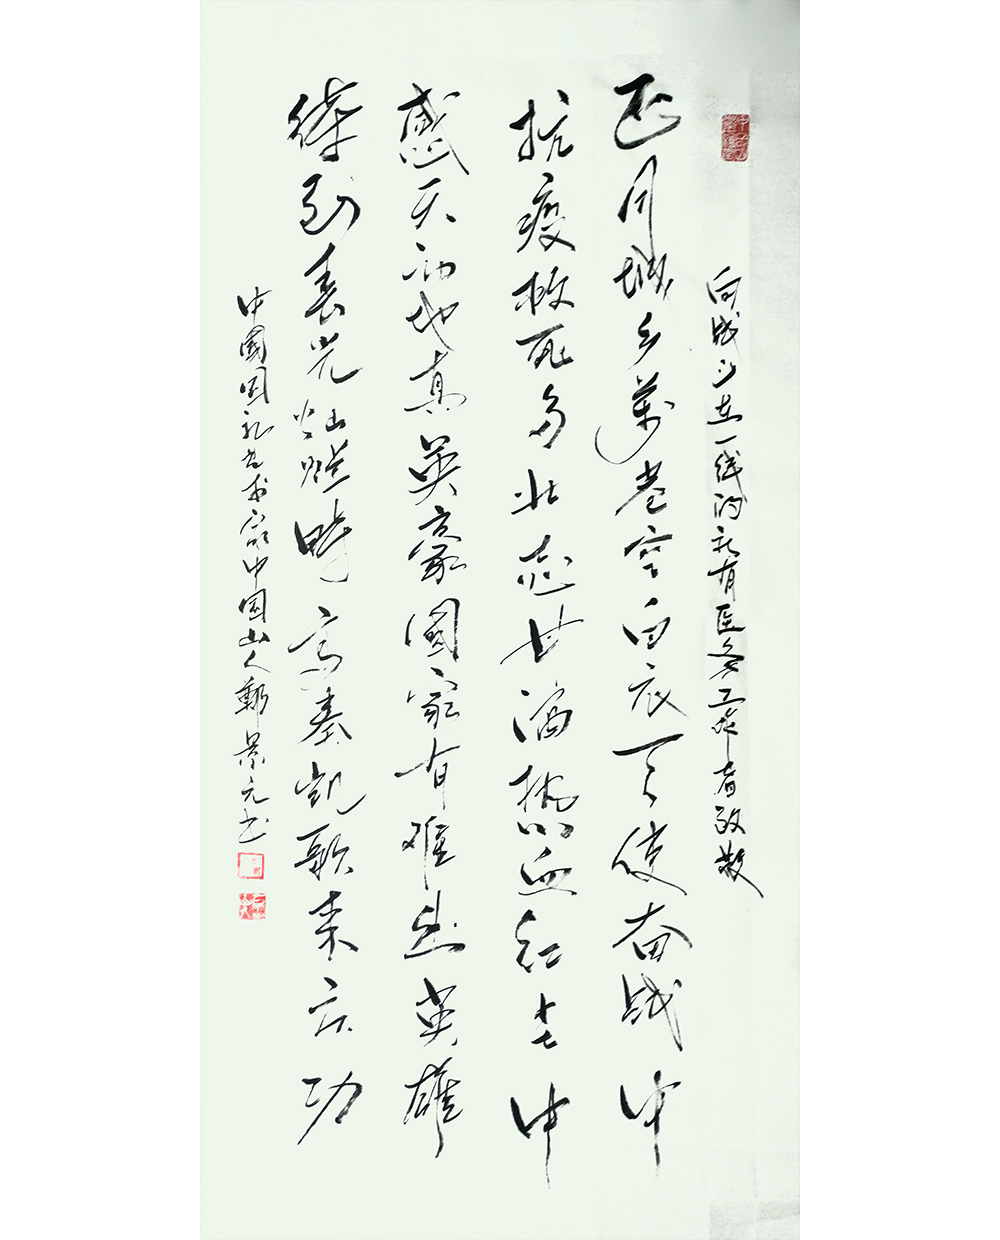 向战斗在一线的所有医务工作者致敬
正月城乡万巷空白衣天使奋战中
抗疫救死多壮志甘洒热血红土中
感天动地真英豪國家有难出英雄
待到春光灿烂時高奏凯歌来庆功
中國国礼艺术家中国山人靳景元书